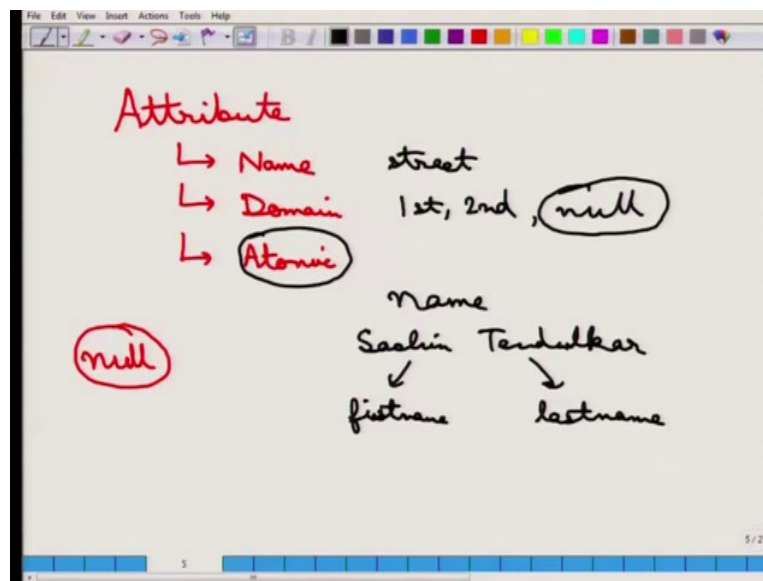 File Edit View Insert Actions Tools Help
B I
Attribute
↳ Name street
↳ Domain 1st, 2nd, null
↳ Atomic
name
null
Sachin Tendulkar
firstname lastname
5/2
5